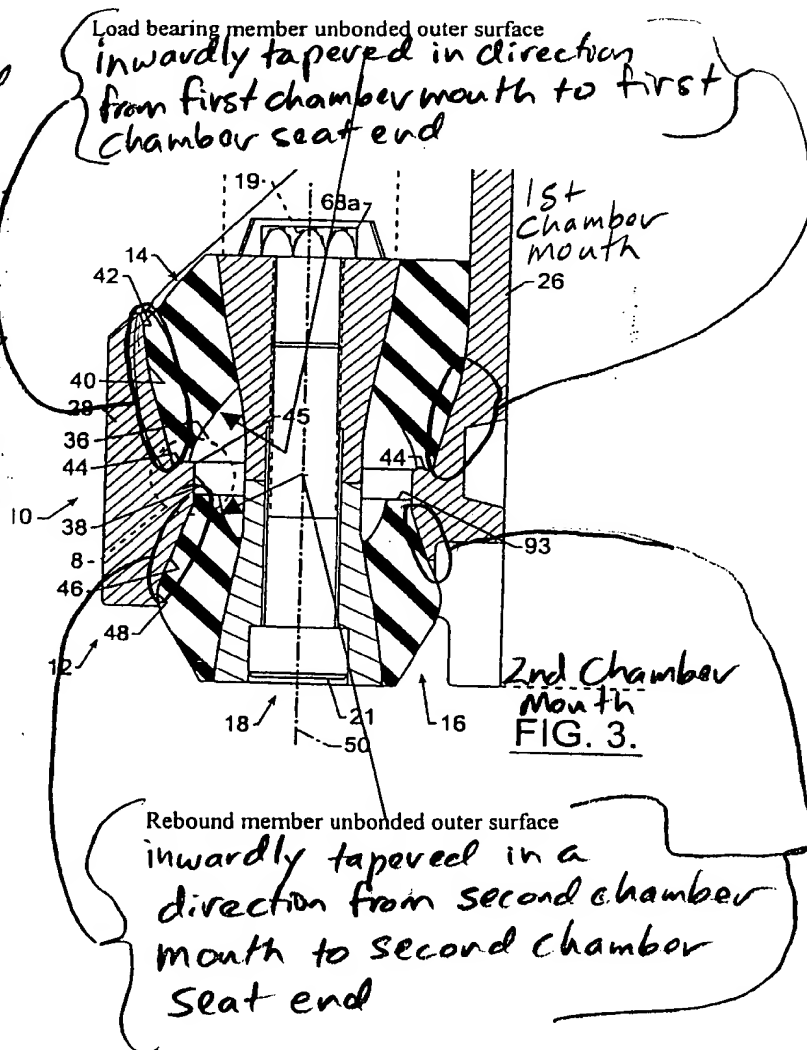 Load bearing member unbonded outer surface
inwardly tapered in direction
from first chamber mouth to first
chamber seat end
19
63a
1st
chamber
mouth
14
26
42
40
28
36
45
44
44
10
38
93
8
46
48
12
2nd Chamber
Mouth
18
21
16
50
FIG. 3.
Rebound member unbonded outer surface
inwardly tapered in a
direction from second chamber
mouth to second chamber
seat end